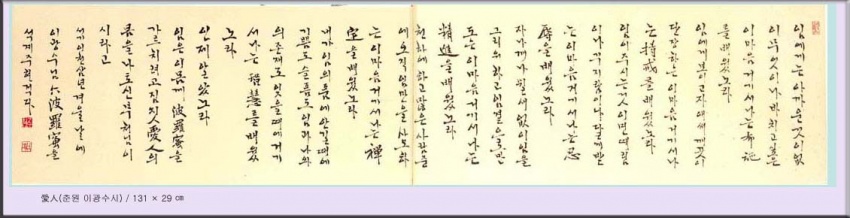 임에게는 아까운 것이 없
이 무엇이나 바치고 싶은
이 마음 거기서 나는 布施
를 배웠노라
임에게 보이고자 애써 깨끗이
단장하는 이 마음 거기서 나
는 持戒를 배웠노라
임이 주시는 것이면 때림
이나 꾸지람이나 달게 받
는 이 마음 거기서 나는 忍
辱을 배웠노라
자나깨나 쉴 새 없이 임을
그리워하고 임 곁으로만
도는 이 마음 거기서 나는
精進을 배웠노라
천하에 하고 많은 사람 중
에 오직 임만을 사모하
는 이 마음 거기서 나는 禪
定을 배웠노라
내가 임의 품에 안길 때에
기쁨도 슬픔도 임과 나와
의 존재도 잊을 때에 거기
서 나는 智慧를 배웠
노라
인제 알았노라
임은 이 몸께 波羅蜜을
가르치려고 짐짓 愛人의
몸을 나토신 부처님이
시라고
서기 이천삼년 겨울날에
이광수님 六波羅蜜을
석계 적다
愛人(춘원 이광수시) / 131 × 29 ㎝